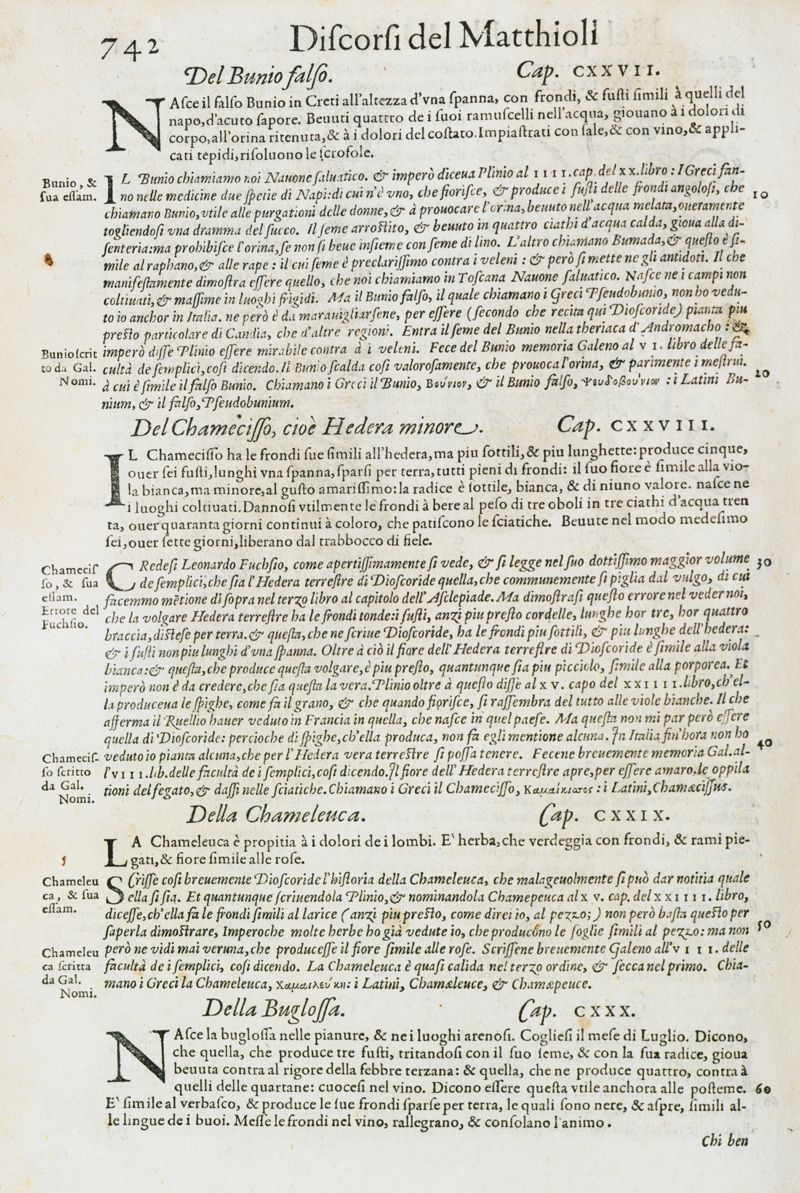 742 Diſcorſi del Matthioli
Del Bunio falſo. Cap. CXXVII.
NAſce il falſo Bunio in Creti all'altezza d'vna ſpanna, con frondi, & fuſti ſimili à quelli del
napo, d'acuto ſapore. Beuuti quattro de i ſuoi ramuſcelli nell'acqua, giouano à i dolori di
corpo, all'orina ritenuta, & à i dolori del coſtato. Impiaſtrati con ſale, & con vino, & appli-
cati tepidi, riſoluono le ſcrofole.
Bunio, &
ſua eſſam.
IL Bunio chiamiamo noi Nauone ſaluatico. & imperò diceua Plinio al IIII. cap. del xx. libro: I Greci fan-
no nelle medicine due ſpetie di Napi: di cui n'è vno, che fioriſce, & produce i fuſti delle frondi angoloſi, che 10
chiamano Bunio, vtile alle purgationi delle donne, & à prouocare l'orina, beuuto nell'acqua melata, oueramente
togliendoſi vna dramma del ſucco. Il ſeme arroſtito, & beuuto in quattro ciathi d'acqua calda, gioua alla di-
ſenteria: ma prohibiſce l'orina, ſe non ſi beue inſieme con ſeme di lino. L'altro chiamano Bumada, & queſto è ſi-
mile al raphano, & alle rape: il cui ſeme è preclariſſimo contra i veleni: & però ſi mette ne gli antidoti. Il che
manifeſtamente dimoſtra eſſere quello, che noi chiamiamo in Toſcana Nauone ſaluatico. Naſce ne i campi non
coltiuati, & maſſime in luoghi frigidi. Ma il Bunio falſo, il quale chiamano i Greci Pſeudobunio, non ho vedu-
to io anchor in Italia. ne però è da marauigliarſene, per eſſere (ſecondo che recita qui Dioſcoride) pianta piu
preſto particolare di Candia, che d'altre regioni. Entra il ſeme del Bunio nella theriaca d'Andromacho: &
Bunio ſcrit
to da Gal.
Nomi.
imperò diſſe Plinio eſſere mirabile contra à i veleni. Fece del Bunio memoria Galeno al VI. libro delle fa-
cultà de ſemplici, coſi dicendo. Il Bunio ſcalda coſi valoroſamente, che prouoca l'orina, & parimente i meſtrui. 20
à cui è ſimile il falſo Bunio. Chiamano i Greci il Bunio, Βούνιον, & il Bunio falſo, Ψευδοβούνιον: i Latini Bu-
nium, & il falſo, Pſeudobunium.
Del Chameciſſo, cioè Hedera minore. Cap. CXXVIII.
IL Chameciſſo ha le frondi ſue ſimili all'hedera, ma piu ſottili, & piu lunghette: produce cinque,
ouer ſei fuſti, lunghi vna ſpanna, ſparſi per terra, tutti pieni di frondi: il ſuo fiore è ſimile alla vio-
la bianca, ma minore, al guſto amariſſimo: la radice è ſottile, bianca, & di niuno valore. naſce ne
i luoghi coltiuati. Dannoſi vtilmente le frondi à bere al peſo di tre oboli in tre ciathi d'acqua tren
ta, ouer quaranta giorni continui à coloro, che patiſcono le ſciatiche. Beuute nel modo medeſimo
ſei, ouer ſette giorni, liberano dal trabbocco di fiele.
Chameciſ
ſo, & ſua
eſſam.
Errore del
Fuchſio.
CRedeſi Leonardo Fuchſio, come apertiſſimamente ſi vede, & ſi legge nel ſuo dottiſſimo maggior volume 30
de ſemplici, che ſia l'Hedera terreſtre di Dioſcoride quella, che communemente ſi piglia dal vulgo, di cui
facemmo mētione di ſopra nel terzo libro al capitolo dell'Aſclepiade. Ma dimoſtraſi queſto errore nel veder noi,
che la volgare Hedera terreſtre ha le frondi tonde: i fuſti, anzi piu preſto cordelle, lunghe hor tre, hor quattro
braccia, diſteſe per terra. & queſta, che ne ſcriue Dioſcoride, ha le frondi piu ſottili, & piu lunghe dell'hedera:
& i fuſti non piu lunghi d'vna ſpanna. Oltre à ciò il fiore dell'Hedera terreſtre di Dioſcoride è ſimile alla viola
bianca: & queſta, che produce queſta volgare, è piu preſto, quantunque ſia piu picciolo, ſimile alla porporea. Et
imperò non è da credere, che ſia queſta la vera. Plinio oltre à queſto diſſe al xv. capo del xxIIII. libro, ch'el-
la produceua le ſpighe, come fa il grano, & che quando fioriſce, ſi raſſembra del tutto alle viole bianche. Il che
afferma il Ruellio hauer veduto in Francia in quella, che naſce in quel paeſe. Ma queſta non mi par però eſſere
quella di Dioſcoride: percioche di ſpighe, ch'ella produca, non fa egli mentione alcuna. In Italia fin'hora non ho 40
Chameciſ-
ſo ſcritto
da Gal.
Nomi.
veduto io pianta alcuna, che per l'Hedera vera terreſtre ſi poſſa tenere. Fecene breuemente memoria Gal. al-
l'VIII. lib. delle facultà de i ſemplici, coſi dicendo. Il fiore dell'Hedera terreſtre apre, per eſſere amaro, le oppila
tioni del fegato, & daſſi nelle ſciatiche. Chiamano i Greci il Chameciſſo, Χαμαίκισσος: i Latini, Chamæciſſus.
Della Chameleuca. Cap. CXXIX.
LA Chameleuca è propitia à i dolori de i lombi. E' herba, che verdeggia con frondi, & rami pie-
gati, & fiore ſimile alle roſe.
Chameleu
ca, & ſua
eſſam.
SCriſſe coſi breuemente Dioſcoride l'hiſtoria della Chameleuca, che malageuolmente ſi può dar notitia quale
ella ſi ſia. Et quantunque ſcriuendola Plinio, & nominandola Chamepeuca al xv. cap. del xxIIII. libro,
diceſſe, ch'ella fà le frondi ſimili al larice (anzi piu preſto, come direi io, al pezzo;) non però baſta queſto per
ſaperla dimoſtrare, Imperoche molte herbe ho già vedute io, che producono le foglie ſimili al pezzo: ma non 50
Chameleu
ca ſcritta
da Gal.
Nomi.
però ne vidi mai veruna, che produceſſe il fiore ſimile alle roſe. Scriſſene breuemente Galeno all'VIII. delle
facultà de i ſemplici, coſi dicendo. La Chameleuca è quaſi calida nel terzo ordine, & ſecca nel primo. Chia-
mano i Greci la Chameleuca, χαμαιλεύκη: i Latini, Chamæleuce, & Chamæpeuce.
Della Bugloſſa. Cap. CXXX.
NAſce la bugloſſa nelle pianure, & ne i luoghi arenoſi. Coglieſi il meſe di Luglio. Dicono,
che quella, che produce tre fuſti, tritandoſi con il ſuo ſeme, & con la ſua radice, gioua
beuuta contra al rigore della febbre terzana: & quella, che ne produce quattro, contra à
quelli delle quartane: cuoceſi nel vino. Dicono eſſere queſta vtile anchora alle poſteme. 60
E' ſimile al verbaſco, & produce le ſue frondi ſparſe per terra, le quali ſono nere, & aſpre, ſimili al-
le lingue de i buoi. Meſſe le frondi nel vino, rallegrano, & conſolano l'animo.
Chi ben